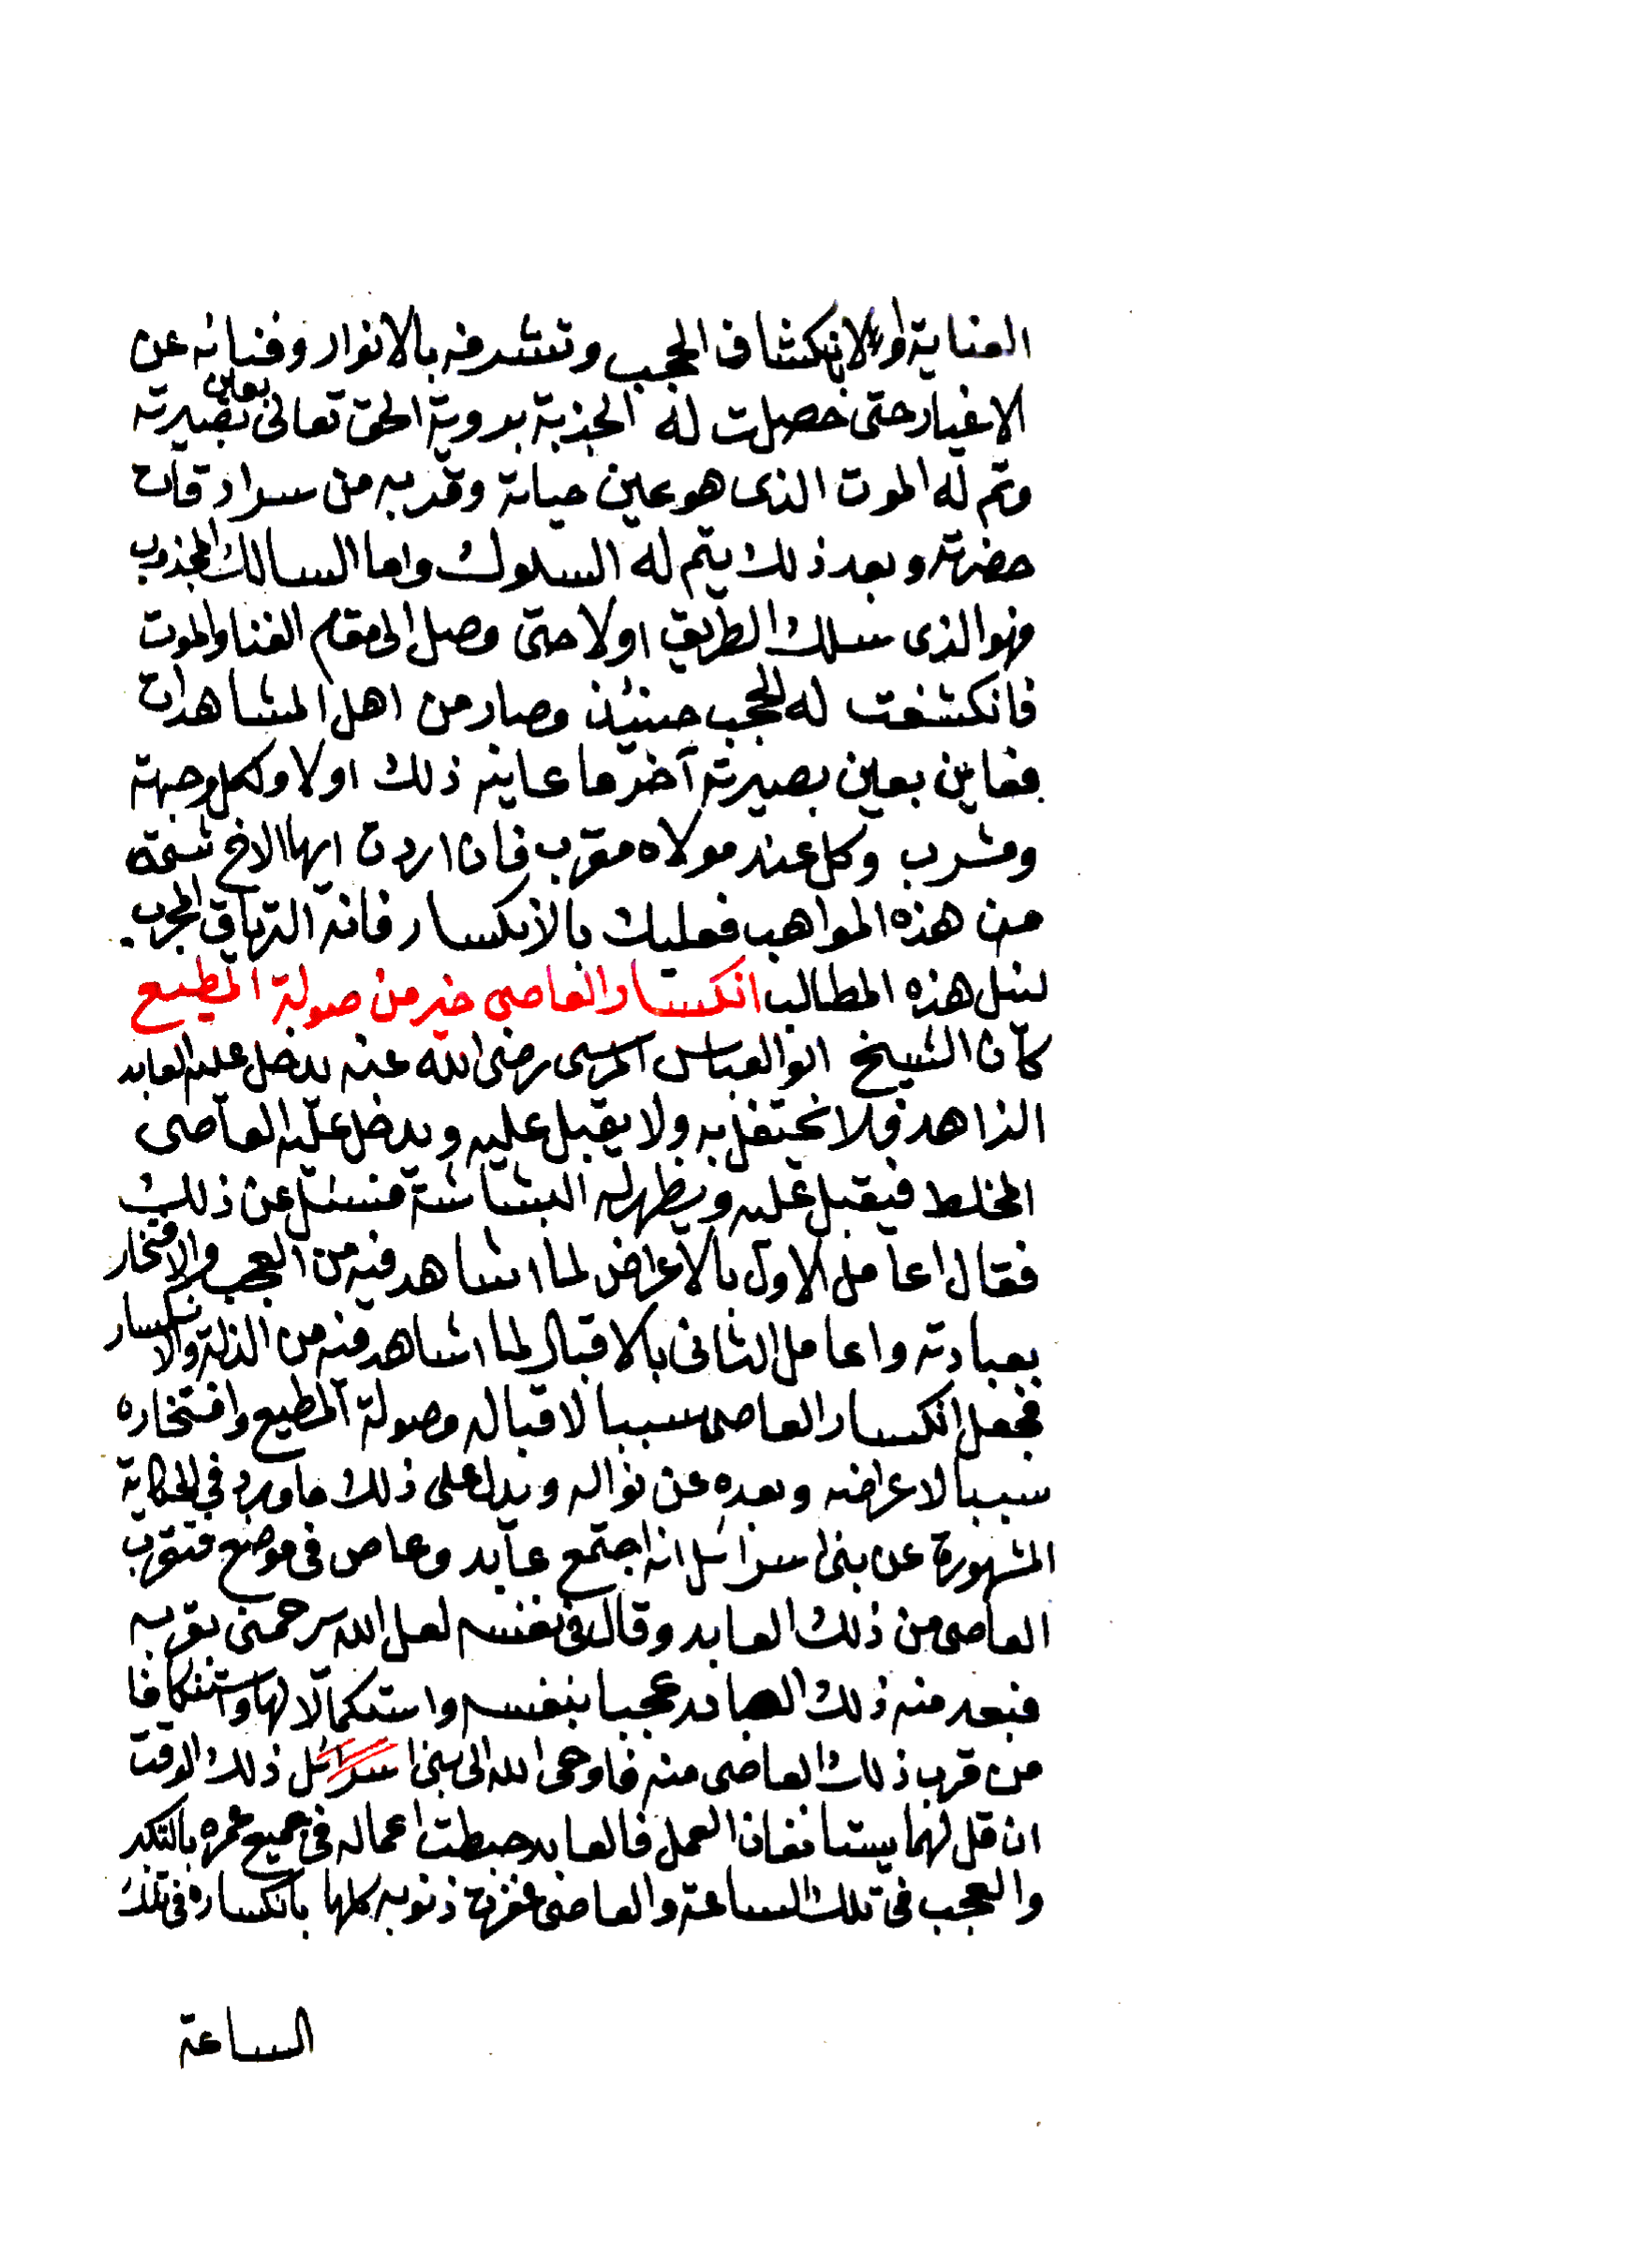 العناية اولا لانكشاف الحجب وتشرفه بالانوار وفنائه عن
الاغيار حتى حصلت له الجذبة بروية الحق تعالى بعين بصيرته
وتم له الموت الذى هو عين حياته وقربه من سرادقات
حضرته وبعد ذلك يتم له السلوك واما السالك المجذوب
فهو الذى سلك الطريق اولا حتى وصل الى مقام الفنا والموت
فانكشفت له الحجب حينئذ وصار من اهل المشاهدات
فعاين بعين بصيرته آخر ما عاينه ذلك اولا ولكل وجهة
ومشرب وكل عند مولاه مقرب فان اردت ايها الاخ نسمة
من هذه المواهب فعليك بالانكسار فانه الترياق المجرب
لنيل هذه المطالب انكسار العاصى خير من صولة المطيع
كان الشيخ ابو العباس المرسى رضى الله عنه يدخل عليه العابد
الزاهد فلا يحتفل به ولا يقبل عليه ويدخل عليه العاصى
المخلط فيقبل عليه ويظهر له البشاشة فسئل عن ذلك
فقال اعامل الاول بالاعراض لما اشاهد فيه من العجب والافتخار
بعبادته واعامل الثانى بالاقبال لما اشاهد فيه من الذلة والانكسار
فجعل انكسار العاصى سببا لاقباله وصولة المطيع وافتخاره
سببا لاعراضه وبعده عن نواله ويدل على ذلك ما ورد في الحكاية
المشهورة عن بنى اسرائل انه اجتمع عابد وعاص فى موضع فتقرب
العاصى من ذلك العابد وقال فى نفسه لعل الله يرحمنى بقربه
فبعد منه ذلك العابد عجبا بنفسه واستكمالا لها واستنكافا
من قرب ذلك العاصى منه فاوحى الله الى بنى اسرائل ذلك الوقت
ان قل لهما يستانفان العمل فالعابد حبطت اعماله فى جميع عمره بالتكبر
والعجب فى تلك الساعة والعاصى غفرت ذنوبه كلها بانكساره فى تلك
الساعة